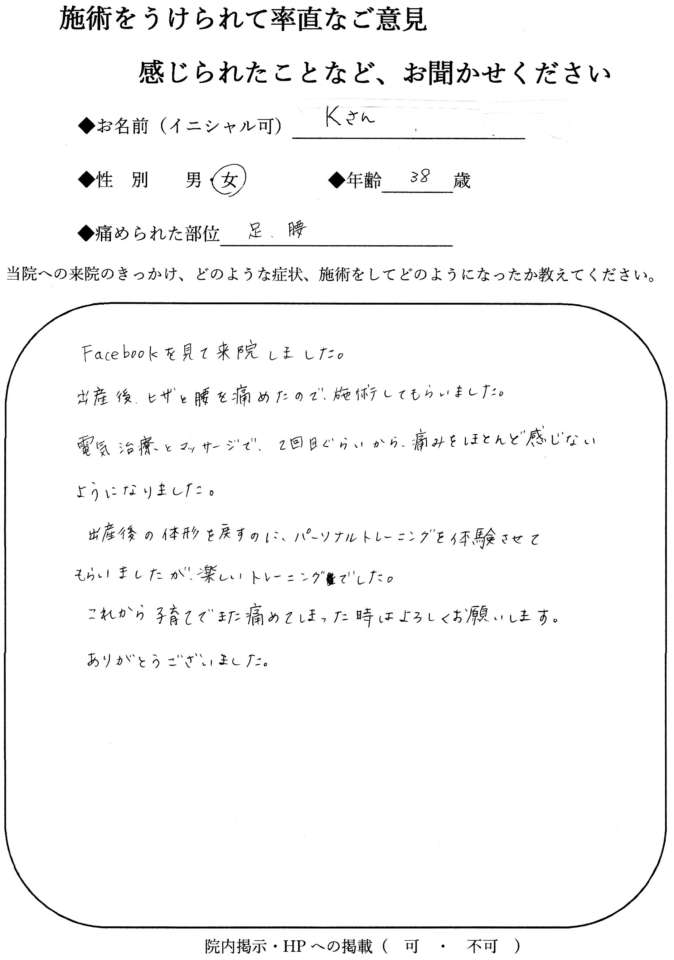 施術をうけられて率直なご意見
感じられたことなど、お聞かせください
◆お名前（イニシャル可） Kさん
◆性　別　男・女　◆年齢 38 歳
◆痛められた部位 足、腰
当院への来院のきっかけ、どのような症状、施術をしてどのようになったか教えてください。
Facebookを見て来院しました。
出産後、ヒザと腰を痛めたので、施術してもらいました。
電気治療とマッサージで、2回目ぐらいから、痛みをほとんど感じない
ようになりました。
出産後の体形を戻すのに、パーソナルトレーニングを体験させて
もらいましたが、楽しいトレーニングでした。
これから子育てでまた痛めてしまった時はよろしくお願いします。
ありがとうございました。
院内掲示・HPへの掲載（　可　・　不可　）